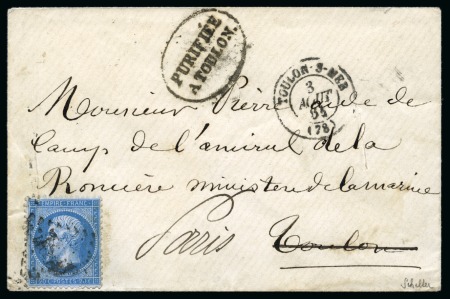 PURIFIÉE
A TOULON.
TOULON-S-MER
3
AOUT
(78)
Monsieur Pierre aide de
Camp de l'amiral de la
Roncière ministère de la marine
Paris Toulon
EMPIRE FRANC
20 C POSTES 20 C
Scheller